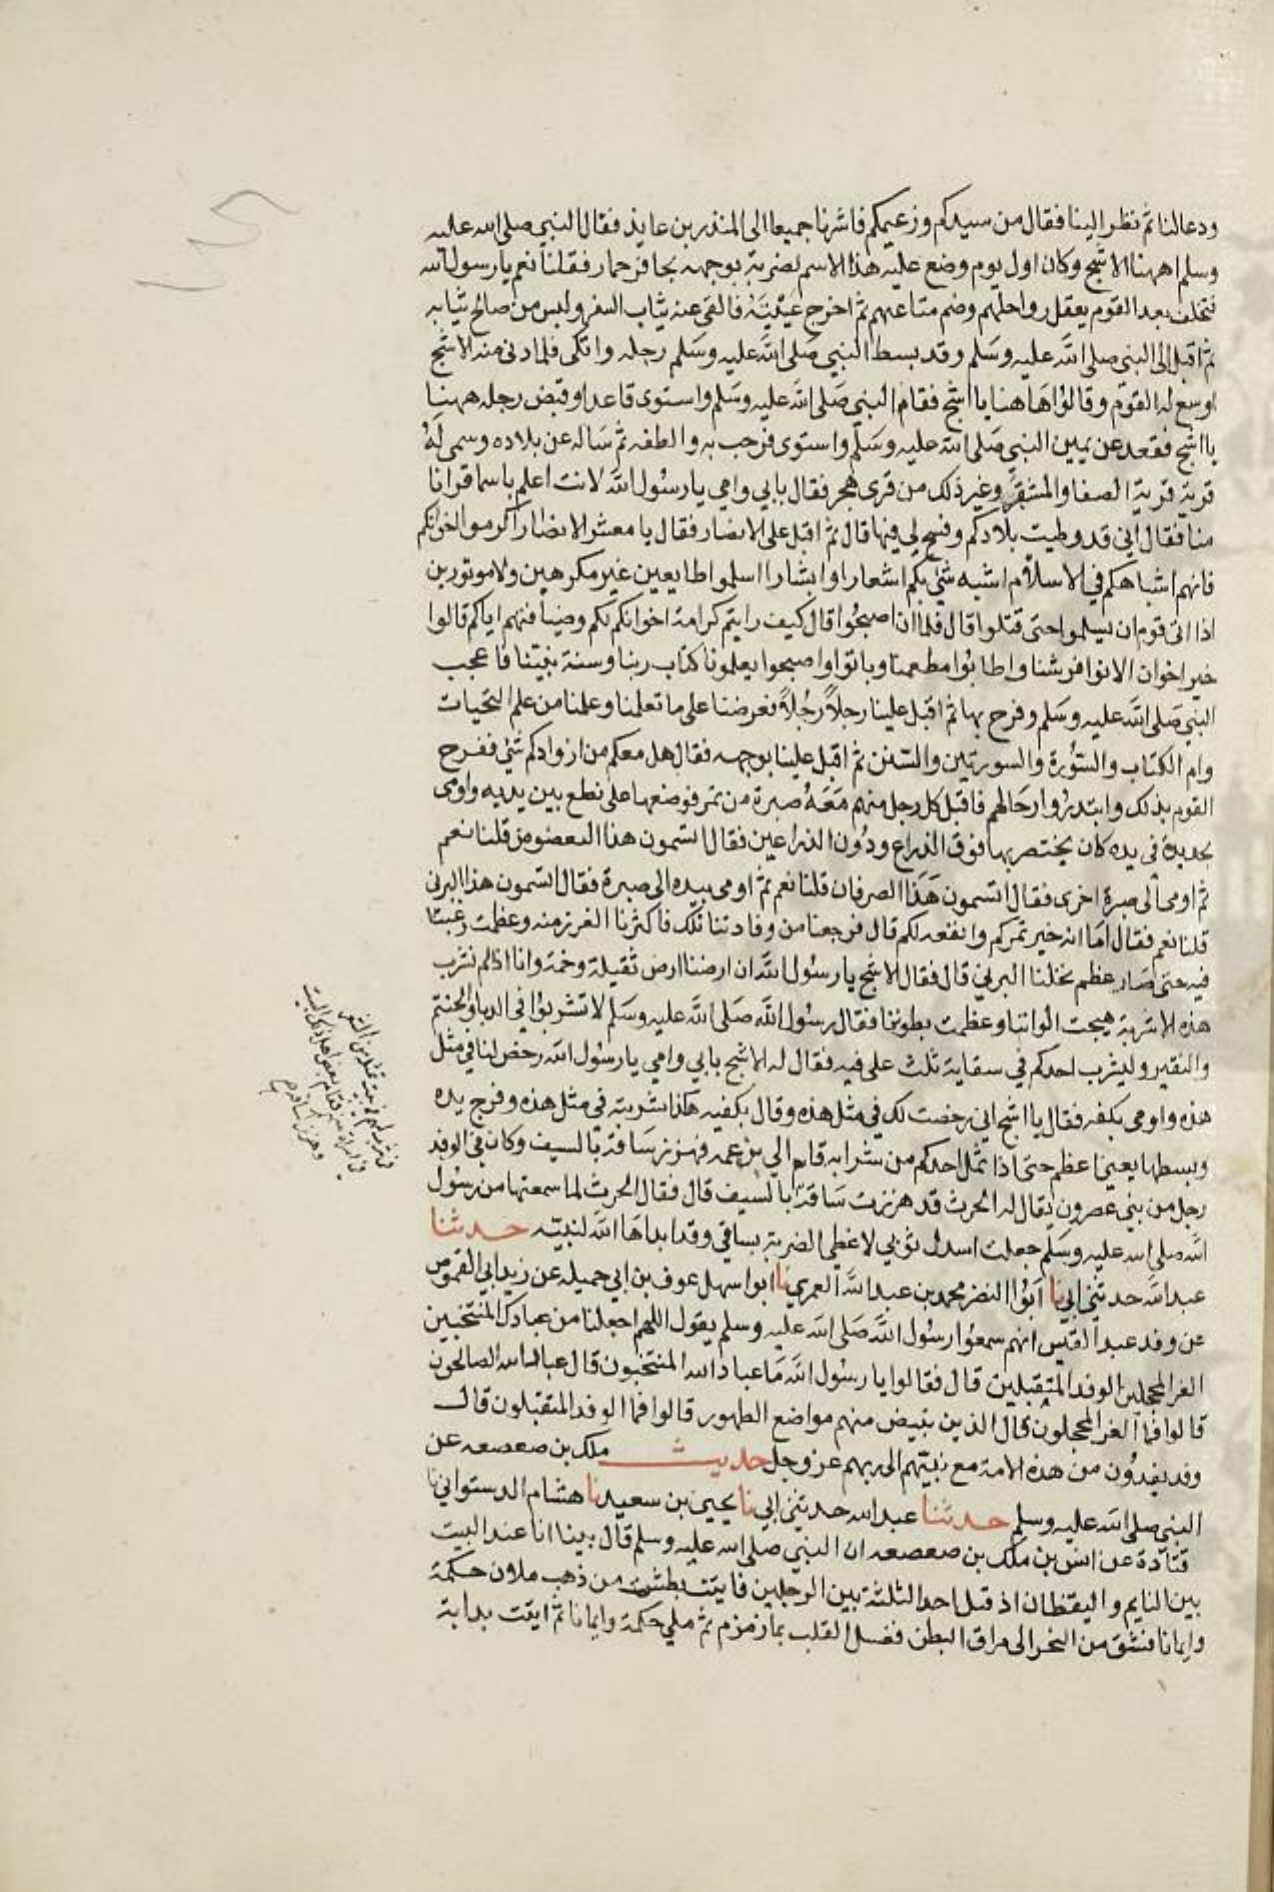 ودعا لنا ثم نظر الينا فقال من سيدكم وزعيمكم فاشرنا جميعا الى المنذر بن عايذ فقال النبي صلى الله عليه
وسلم اههنا الاشج وكان اول يوم وضع عليه هذا الاسم لضربة بوجهه بحافر حمار فقلنا نعم يا رسول الله
فتخلف بعد القوم يعقل رواحلهم وضم متاعهم ثم اخرج عيبته فالقى عنه ثياب السفر ولبس من صالح ثيابه
ثم اقبل الى النبي صلى الله عليه وسلم وقد بسط النبي صلى الله عليه وسلم رجله واتكى فلما دنى منه الاشج
اوسع له القوم وقالوا هاهنا يا اشج فقام النبي صلى الله عليه وسلم واستوى قاعدا وقبض رجله ههنا
يا اشج فقعد عن يمين النبي صلى الله عليه وسلم واستوى فرحب به والطفه ثم ساله عن بلاده وسمى له
قرية قرية الصفا والمشقر وغير ذلك من قرى هجر فقال بابي وامي يا رسول الله لانت اعلم باسما قرانا
منا فقال اني قد وطيت بلادكم وفسح لي فيها قال ثم اقبل على الانصار فقال يا معشر الانصار اكرموا اخوانكم
فانهم اشباهكم في الاسلام اشبه شئ بكم اشعارا وابشارا اسلموا طايعين غير مكرهين ولا موتورين
اذا ابى قوم ان يسلموا حتى قتلوا قال فلما ان اصبحوا قال كيف رايتم كرامة اخوانكم لكم وضيافتهم اياكم قالوا
خير اخوان الانوا فرشنا واطابوا مطعمنا وباتوا واصبحوا يعلمونا كتاب ربنا وسنة نبينا فاعجب
النبي صلى الله عليه وسلم وفرح بها ثم اقبل علينا رجلا رجلا فعرضنا على ما تعلمنا وعلمنا من علم التحيات
وام الكتاب والسورة والسورتين والسنن ثم اقبل علينا بوجهه فقال هل معكم من ازوادكم شئ ففرح
القوم بذلك وابتدروا رحالهم فاقبل كل رجل منهم معه صبرة من تمر فوضعها على نطع بين يديه واومى
بجريدة في يده كان يختصر بها فوق الذراع ودون الذراعين فقال اتسمون هذا التعضوض قلنا نعم
ثم اومى الى صبرة اخرى فقال اتسمون هذا الصرفان قلنا نعم ثم اومى بيده الى صبرة فقال اتسمون هذا البرني
قلنا نعم فقال اما انه خير تمركم وانفعه لكم قال فرجعنا من وفادتنا تلك فاكثرنا الغرز منه وعظمت رغبتنا
فيه حتى صار عظم نخلنا البرني قال فقال الاشج يا رسول الله ان ارضنا ارض ثقيلة وخمة وانا اذا لم نشرب
هذه الاشربة هيجت الواننا وعظمت بطوننا فقال رسول الله صلى الله عليه وسلم لا تشربوا في الدبا والحنتم
والنقير وليشرب احدكم في سقاية ثلث على فيه فقال له الاشج بابي وامي يا رسول الله رخص لنا في مثل
هذه واومى بكفه فقال يا اشج اني رخصت لك في مثل هذه وقال بكفيه هكذا شربته في مثل هذه وفرج يده
وبسطها يعني اعظم حتى اذا ثمل احدكم من شرابه قام الى بن عمه فهزز ساقه بالسيف وكان في الوفد
رجل من بني عصرون يقال له الحرث قد هززت ساقه بالسيف قال فقال الحرث لما سمعتها من رسول
الله صلى الله عليه وسلم جعلت اسدل ثوبي لاغطي الضربة بساقي وقد ابداها الله لنبيه حدثنا
عبد الله حدثني ابي نا ابوا النضر محمد بن عبد الله العمري نا ابوا سهل عوف بن ابي جميلة عن زيد ابي القموص
عن وفد عبد القيس انهم سمعوا رسول الله صلى الله عليه وسلم يقول اللهم اجعلنا من عبادك المنتخبين
الغر المحجلين الوفد المتقبلين قال فقالوا يا رسول الله ما عباد الله المنتخبون قال عباد الله الصالحون
قالوا فما الغر المحجلون قال الذين تبيض منهم مواضع الطهور قالوا فما الوفد المتقبلون قال
وفد يفدون من هذه الامة مع نبيهم الى ربهم عز وجل حديث ملك بن صعصعه عن
النبي صلى الله عليه وسلم حدثنا عبد الله حدثني ابي نا يحيى بن سعيد نا هشام الدستواني نا
قتادة عن انس بن ملك بن صعصعه ان النبي صلى الله عليه وسلم قال بينا انا عند البيت
بين النايم واليقظان اذ قبل احد الثلثة بين الرجلين فاتيت بطشت من ذهب ملان حكمة
وايمانا فشق من النحر الى مراق البطن فغسل القلب بما زمزم ثم ملي حكمة وايمانا ثم اتيت بدابة